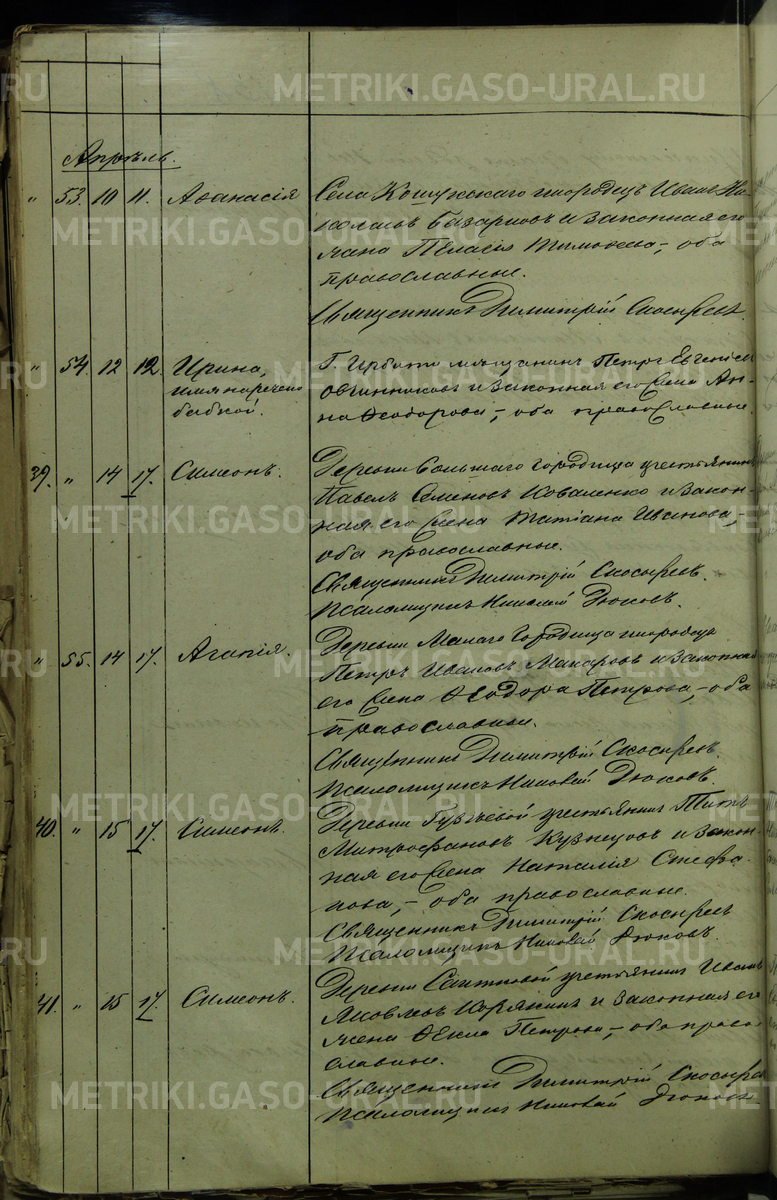 Апрѣль.
" 53. 10 11. Аѳанасія Села Кошукскаго инородецъ Иванъ Ни-
колаевъ Базариновъ и законная его
жена Пелагія Тимоѳеева, оба
православные.
Священникъ Димитрій Скосыревъ.
" 54. 12 12. Ирина, Г. Ирбита мѣщанинъ Петръ Евгеніевъ
имя наречено Овчинниковъ и законная его жена Ан-
бабкой. на Ѳеодорова, оба православные.
39. " 14 17. Симеонъ. Деревни Большаго Городища крестьянинъ
Павелъ Семеновъ Коваленко и закон-
ная его жена Татіана Иванова,
оба православные.
Священникъ Димитрій Скосыревъ.
Псаломщикъ Николай Дюковъ.
" 55. 14 17. Агапія. Деревни Малаго Городища инородецъ
Петръ Ивановъ Макаровъ и законная
его жена Ѳеодора Петрова, оба
православные.
Священникъ Димитрій Скосыревъ.
Псаломщикъ Николай Дюковъ.
40. " 15 17. Симеонъ. Деревни крестьянинъ Титъ
Митрофановъ Кузнецовъ и закон-
ная его жена Наталія Стефа-
нова, оба православные.
Священникъ Димитрій Скосыревъ
Псаломщикъ Николай Дюковъ.
41. " 15 17. Симеонъ. Деревни крестьянинъ Иванъ
Яковлевъ Корякинъ и законная его
жена Ѳекла Петрова, оба право-
славные.
Священникъ Димитрій Скосыревъ
Псаломщикъ Николай Дюковъ
METRIKI.GASO-URAL.RU